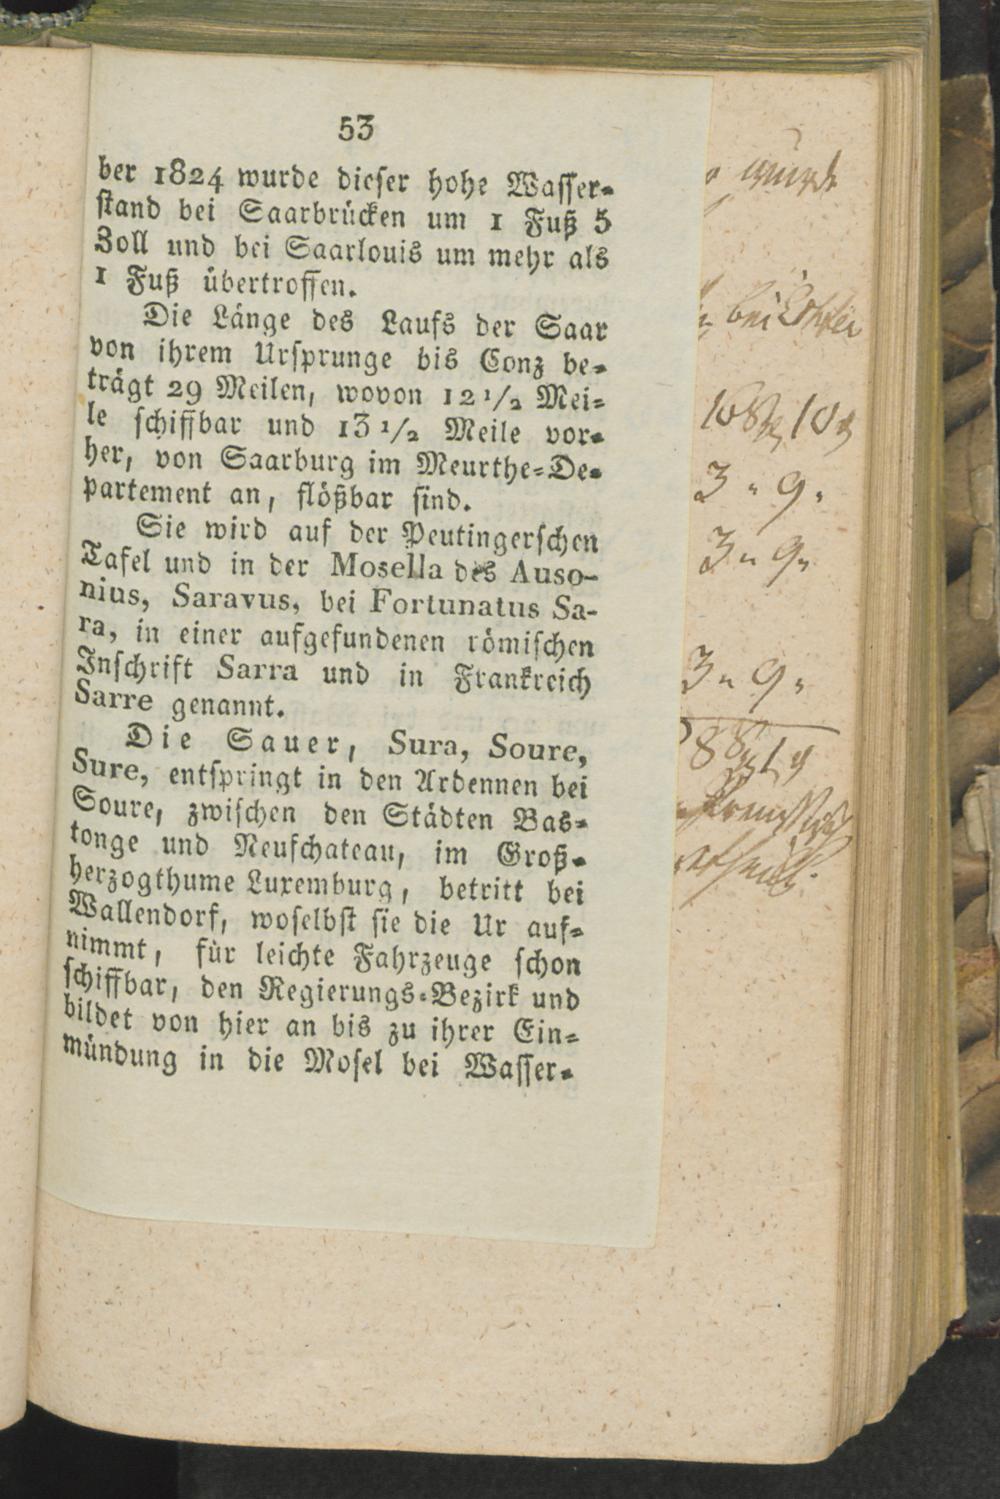 53
ber 1824 wurde dieser hohe Wasser-
stand bei Saarbrücken um 1 Fuß 5
Zoll und bei Saarlouis um mehr als
1 Fuß übertroffen.
Die Länge des Laufs der Saar
von ihrem Ursprunge bis Conz be-
trägt 29 Meilen, wovon 12 1/2 Mei-
le schiffbar und 13 1/2 Meile vor-
her, von Saarburg im Meurthe-De-
partement an, flößbar sind.
Sie wird auf der Peutingerschen
Tafel und in der Mosella des Auso-
nius, Saravus, bei Fortunatus Sa-
ra, in einer aufgefundenen römischen
Inschrift Sarra und in Frankreich
Sarre genannt.
Die Sauer, Sura, Soure,
Sure, entspringt in den Ardennen bei
Soure, zwischen den Städten Bas-
tonge und Neufchateau, im Groß-
herzogthume Luxemburg, betritt bei
Wallendorf, woselbst sie die Ur auf-
nimmt, für leichte Fahrzeuge schon
schiffbar, den Regierungs-Bezirk und
bildet von hier an bis zu ihrer Ein-
mündung in die Mosel bei Wasser-
wurde
bei
3 " 9 "
3 " 9 "
3 " 9 "